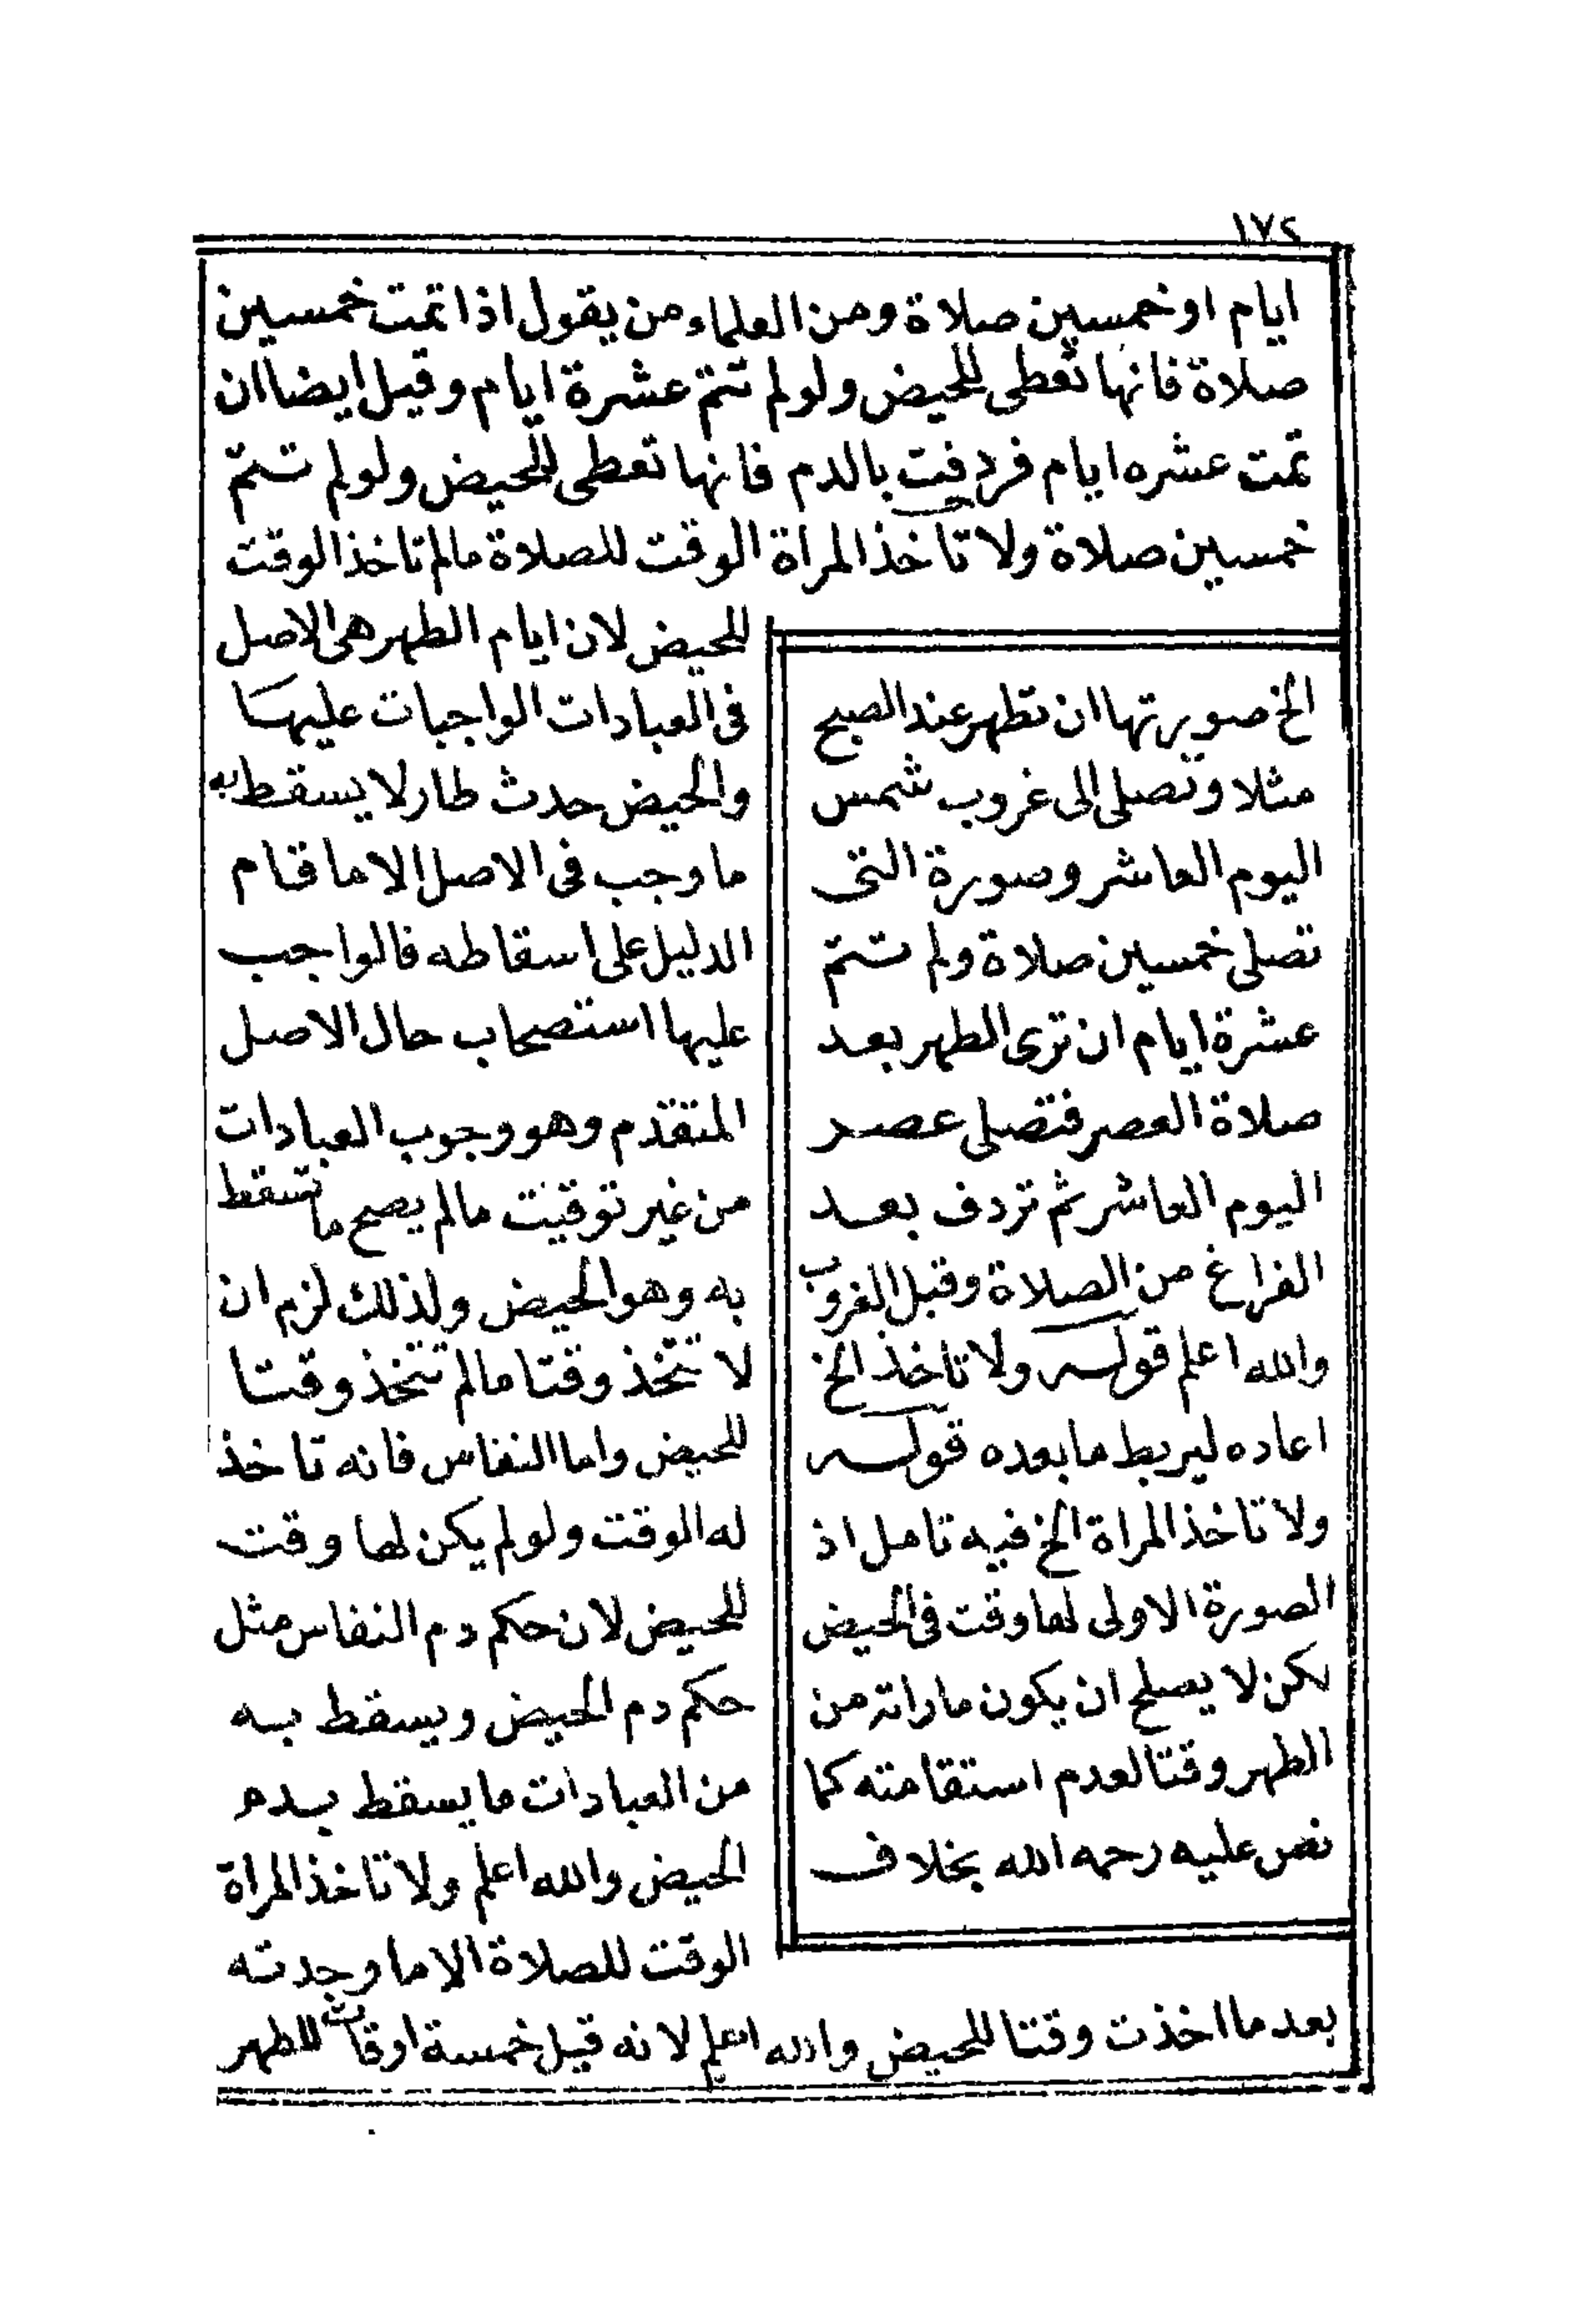 ١٧٢
ايام او خمسين صلاة ومن العلماء من يقول اذا تمت خمسين
صلاة فانها تعطى للحيض ولو لم تتمّ عشرة ايام وقيل ايضا ان
تمت عشره ايام فردفت بالدم فانها تعطى للحيض ولو لم تتمّ
خمسين صلاة ولا تاخذ المراة الوقت للصلاة مالم تاخذ الوقت
للحيض لان ايام الطهر هى الاصل
فى العبادات الواجبات عليها
والحيض حدث طار لا يسقط به
ما وجب فى الاصل الا ما قام
الدليل على اسقاطه فالواجب
عليها استصحاب حال الاصل
المتقدم وهو وجوب العبادات
من غير توقيت مالم يصح ما تسقط
به وهو الحيض ولذلك لزم ان
لا تتخذ وقتا مالم تتخذ وقتا
للحيض واما النفاس فانه تاخذ
له الوقت ولو لم يكن لها وقت
للحيض لان حكم دم النفاس مثل
حكم دم الحيض ويسقط به
من العبادات ما يسقط بدم
الحيض والله اعلم ولا تاخذ المراة
الوقت للصلاة الا ما وجدته
بعد ما اخذت وقتا للحيض والله اعلم لانه قيل خمسة اوقات للطهر
الخ صورتها ان تطهر عند الصبح
مثلا وتصلى الى غروب شمس
اليوم العاشر وصورة التى
تصلى خمسين صلاة ولم تتمّ
عشرة ايام ان ترى الطهر بعد
صلاة العصر فتصلى عصر
اليوم العاشر ثم تردف بعد
الفراغ من الصلاة وقبل الغروب
والله اعلم قوله ولا تاخذ الخ
اعاده ليربط ما بعده قوله
ولا تاخذ المراة الخ فيه تامل اذ
الصورة الاولى لها وقت فى الحيض
لكن لا يصلح ان يكون ماراته من
الطهر وقتا لعدم استقامته كما
نص عليه رحمه الله بخلاف